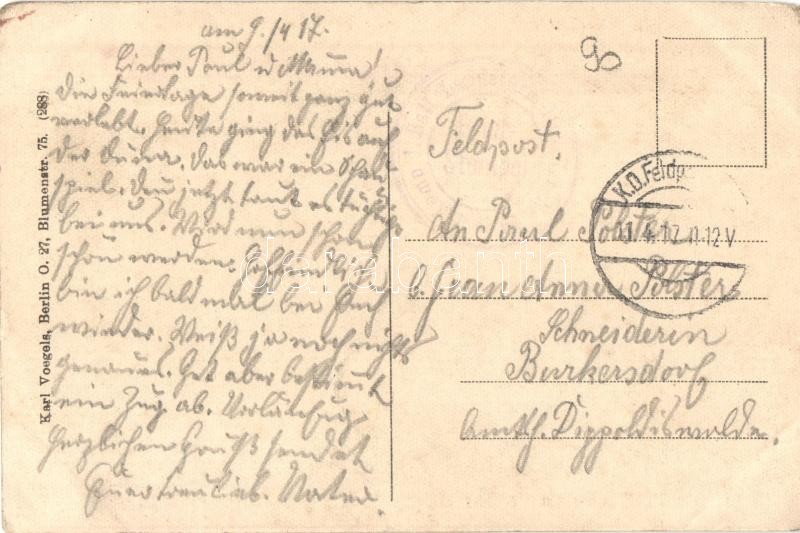 am 9./4 17.
Lieber Paul u Mama!
Die Feiertage soweit ganz gut
verlebt. Heute ging das Eis auf
der Düna. Das war ein Schau
spiel. Den jetzt taut es tüchtig
bei uns. Wird nun schon
schön werden. Hoffendlich
bin ich bald mal bei Euch
wieder. Weiß ja noch nichts
genaues. Geht aber bestimmt
ein Zug ab. Vorläufig
herzlichen Gruß sendet
Euer treul. Vater.
Karl Voegels, Berlin O. 27, Blumenstr. 75. (288)
90
Feldpost.
K.D.Feldp
11.4.17 11-12V
An Paul Polster
b. Frau Anna Polster
Schneiderin
Burkersdorf
Amth. Dippoldiswalde.
darabanth